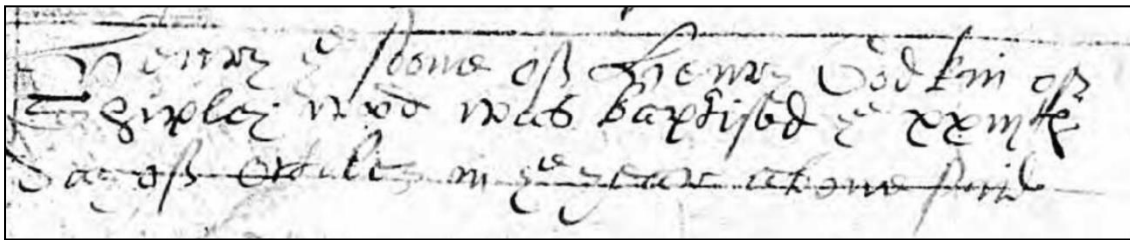 Henry ye sonne of Henry Godkin of
Shipley wod was baptised ye xxiiijth
day of in ye yeare above said